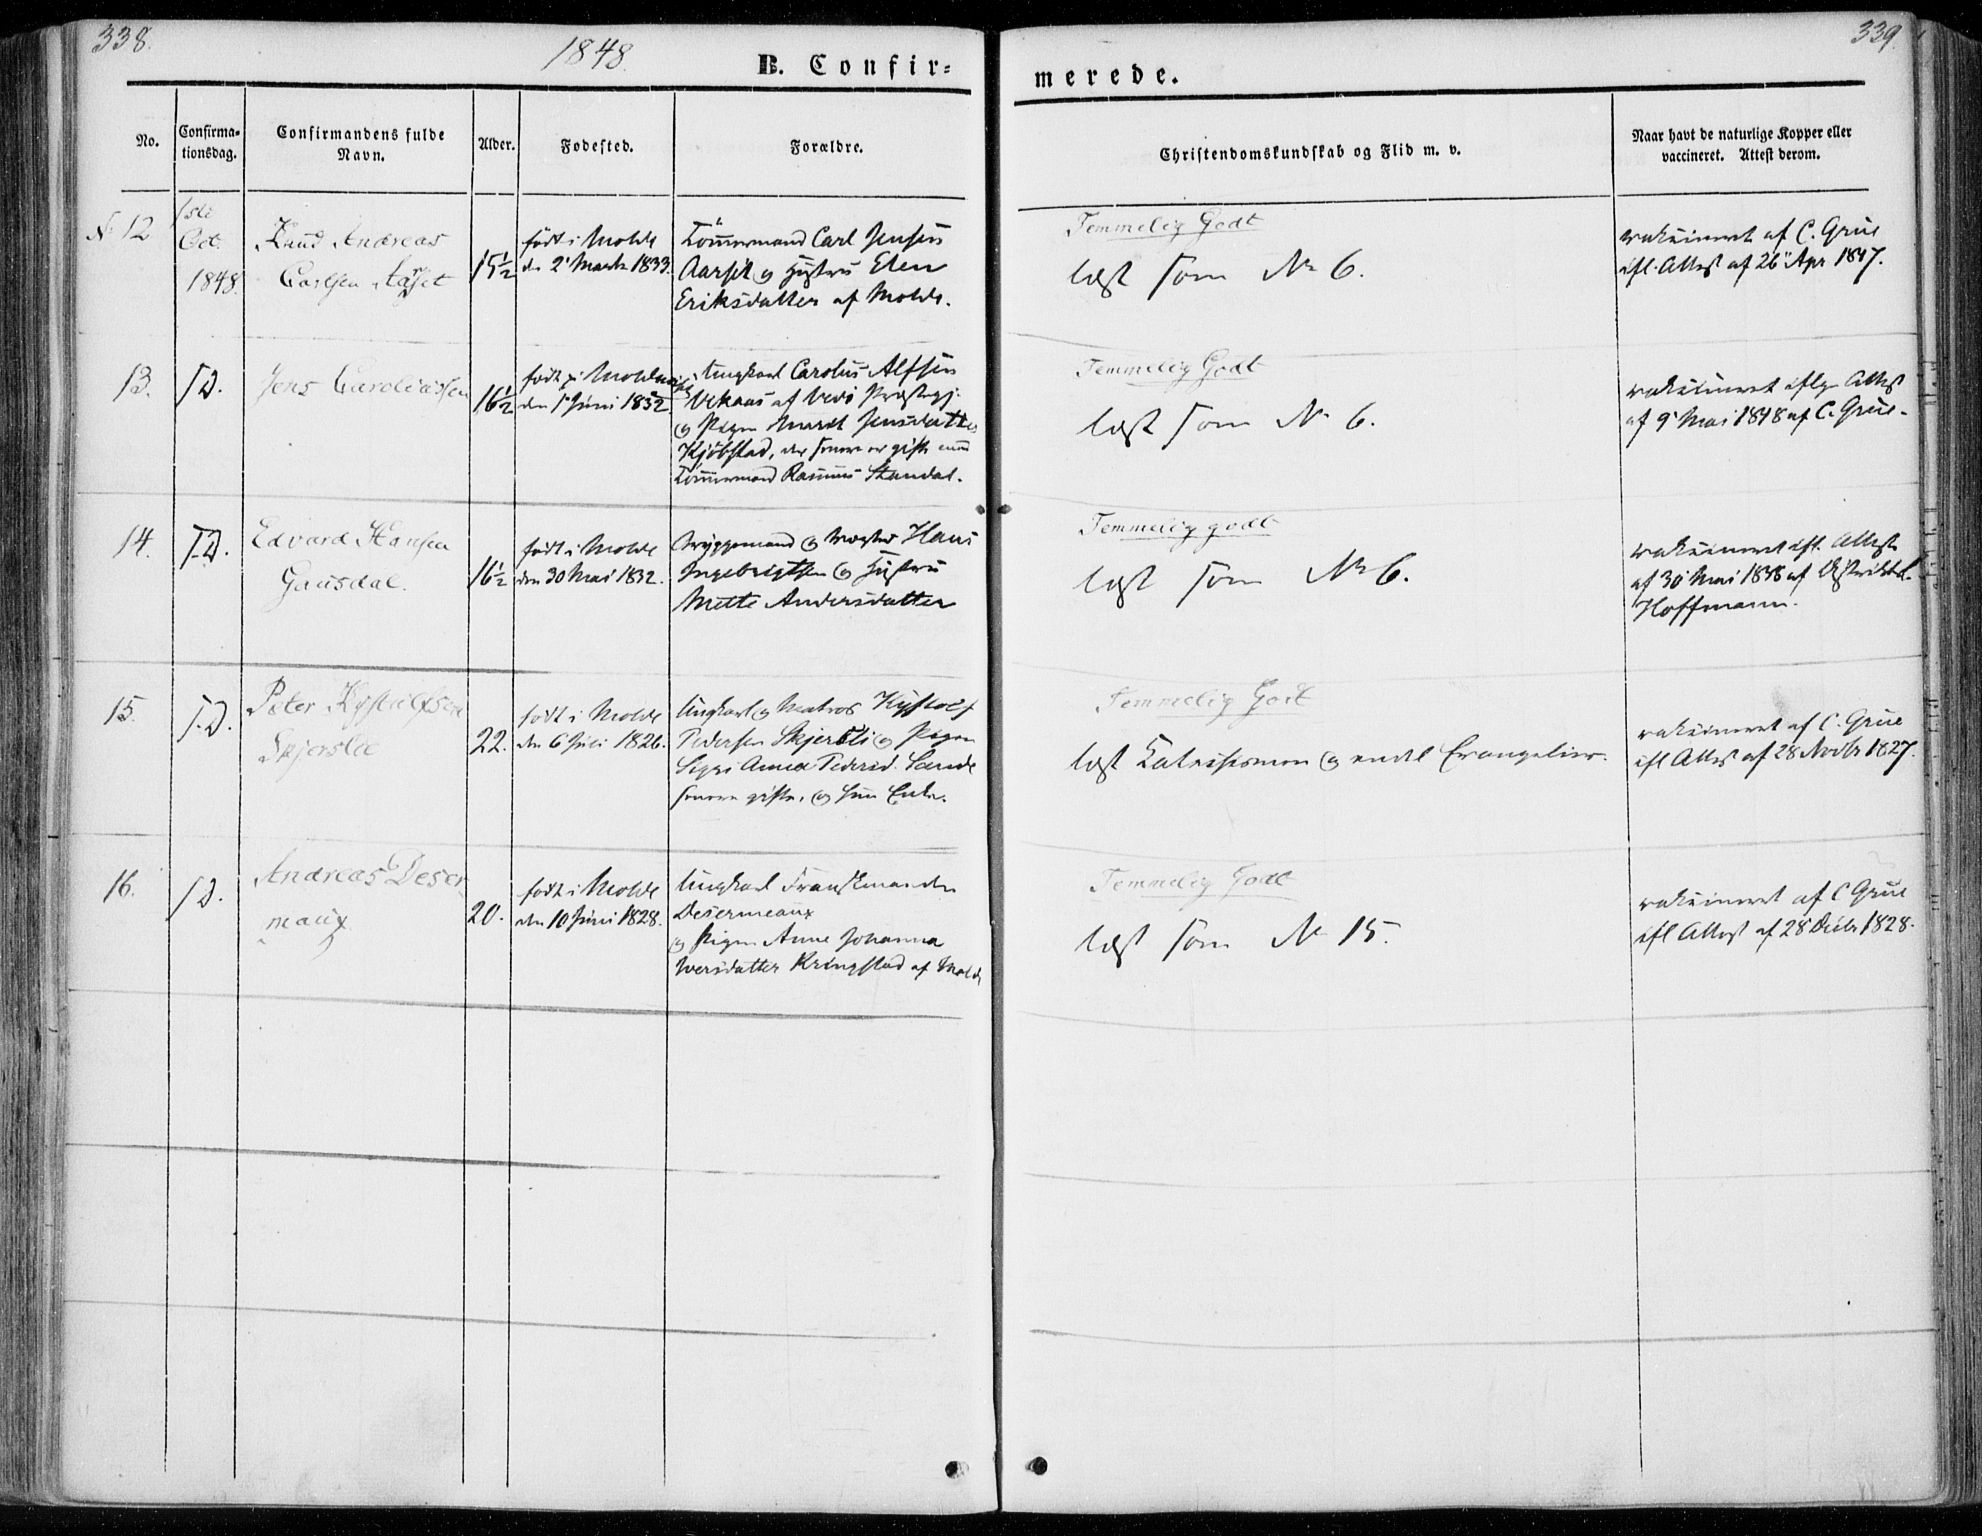 338.
1848.
B. Confir=
merede.
339.
No.
Confirma=
tionsdag.
Confirmandens fulde
Navn.
Alder.
Fødested.
Forældre.
Christendomskundskab og Flid m. v.
Naar havt de naturlige Kopper eller
vaccineret. Attest derom.
N. 12
1ste
Oct.
1848.
Knud Andreas
Carlsen Aaset
15½
født i Molde
den 2' Marts 1833.
Tömmermand Carl Jensen
Aarset og Hustru Elen
Eriksdatter af Molde.
Temmelig Godt
læst som No 6.
vakcineret af C. Grüe
ifl. Attest af 26' Apr 1847.
13.
I.D.
Jens Caroliussen
16½
født i Molde
den 1' Juni 1832
Ungkarl Carolus Alfsen
af Veö Præstegj.
og Pigen Marit Jensdatter
Kjöbstad, der senere er gift med
Tömmermand Rasmus Standal.
Temmelig Godt
læst som No 6.
vakcineret iflg. Attest
af 9' Mai 1848 af C. Grüe.
14.
I.D.
Edvard Hansen
Gausdal.
16½
født i Molde
den 30 Mai 1832.
Bryggemand og Vægter Hans
Ingebrigtsen og Hustru
Mette Andersdatter
Temmelig godt
læst som No 6.
vakcineret ifl. Attest
af 30' Mai 1838 af Distriktsl.
Hoffmann.
15.
I.D.
Peter Kystolfsen
Skjerslie
22.
født i Molde
den 6 Juli 1826.
Ungkarl og Matros Kystolf
Pedersen Skjersli og Pigen
Anna Pedersd. Sande
senere gifte, og hun Enke.
Temmelig Godt
læst Katekismen og endel Evangelier.
vakcineret af C. Grüe
ifl Attest af 28 Novbr 1827.
16.
I.D.
Andreas Deser
maux
20.
født i Molde
den 10 Juni 1828.
Ungkarl Franskmanden
Desermeaux
og Pigen Anne Johanna
Iversdatter Kringstad af Molde
Temmelig Godt
læst som No 15.
vakcineret af C Grüe
ifl Attest af 28 Decbr 1828.